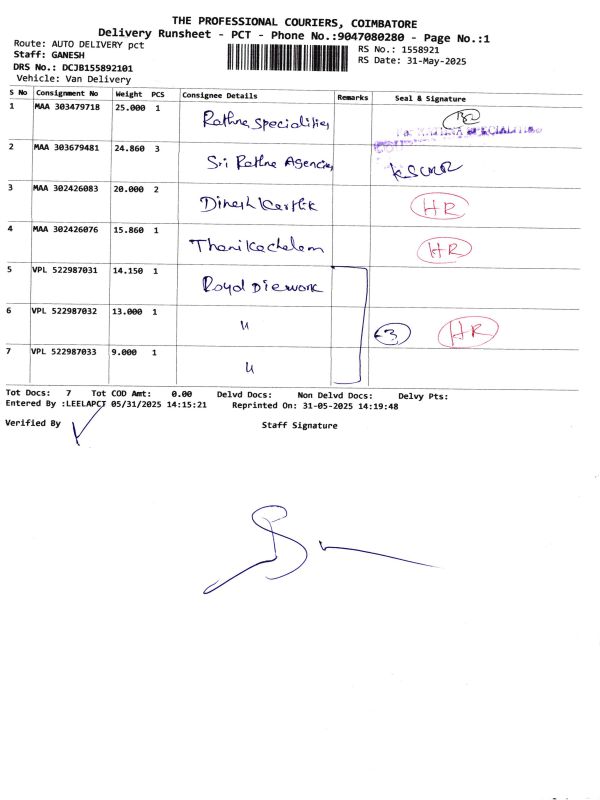 THE PROFESSIONAL COURIERS, COIMBATORE
Delivery Runsheet - PCT - Phone No.:9047080280 - Page No.:1
Route: AUTO DELIVERY pct
RS No.: 1558921
Staff: GANESH
RS Date: 31-May-2025
DRS No.: DCJB155892101
Vehicle: Van Delivery
S No Consignment No Weight PCS Consignee Details Remarks Seal & Signature
1 MAA 303479718 25.000 1 Rathna Specialities
2 MAA 303679481 24.860 3 Sri Rathna Agencies
3 MAA 302426083 20.000 2 Dinesh Karthik HR
4 MAA 302426076 15.860 1 Thanikachelam HR
5 VPL 522987031 14.150 1 Royal Diework
6 VPL 522987032 13.000 1 u 3 HR
7 VPL 522987033 9.000 1 u
Tot Docs: 7 Tot COD Amt: 0.00 Delvd Docs: Non Delvd Docs: Delvy Pts:
Entered By :LEELAPCT 05/31/2025 14:15:21 Reprinted On: 31-05-2025 14:19:48
Verified By Staff Signature